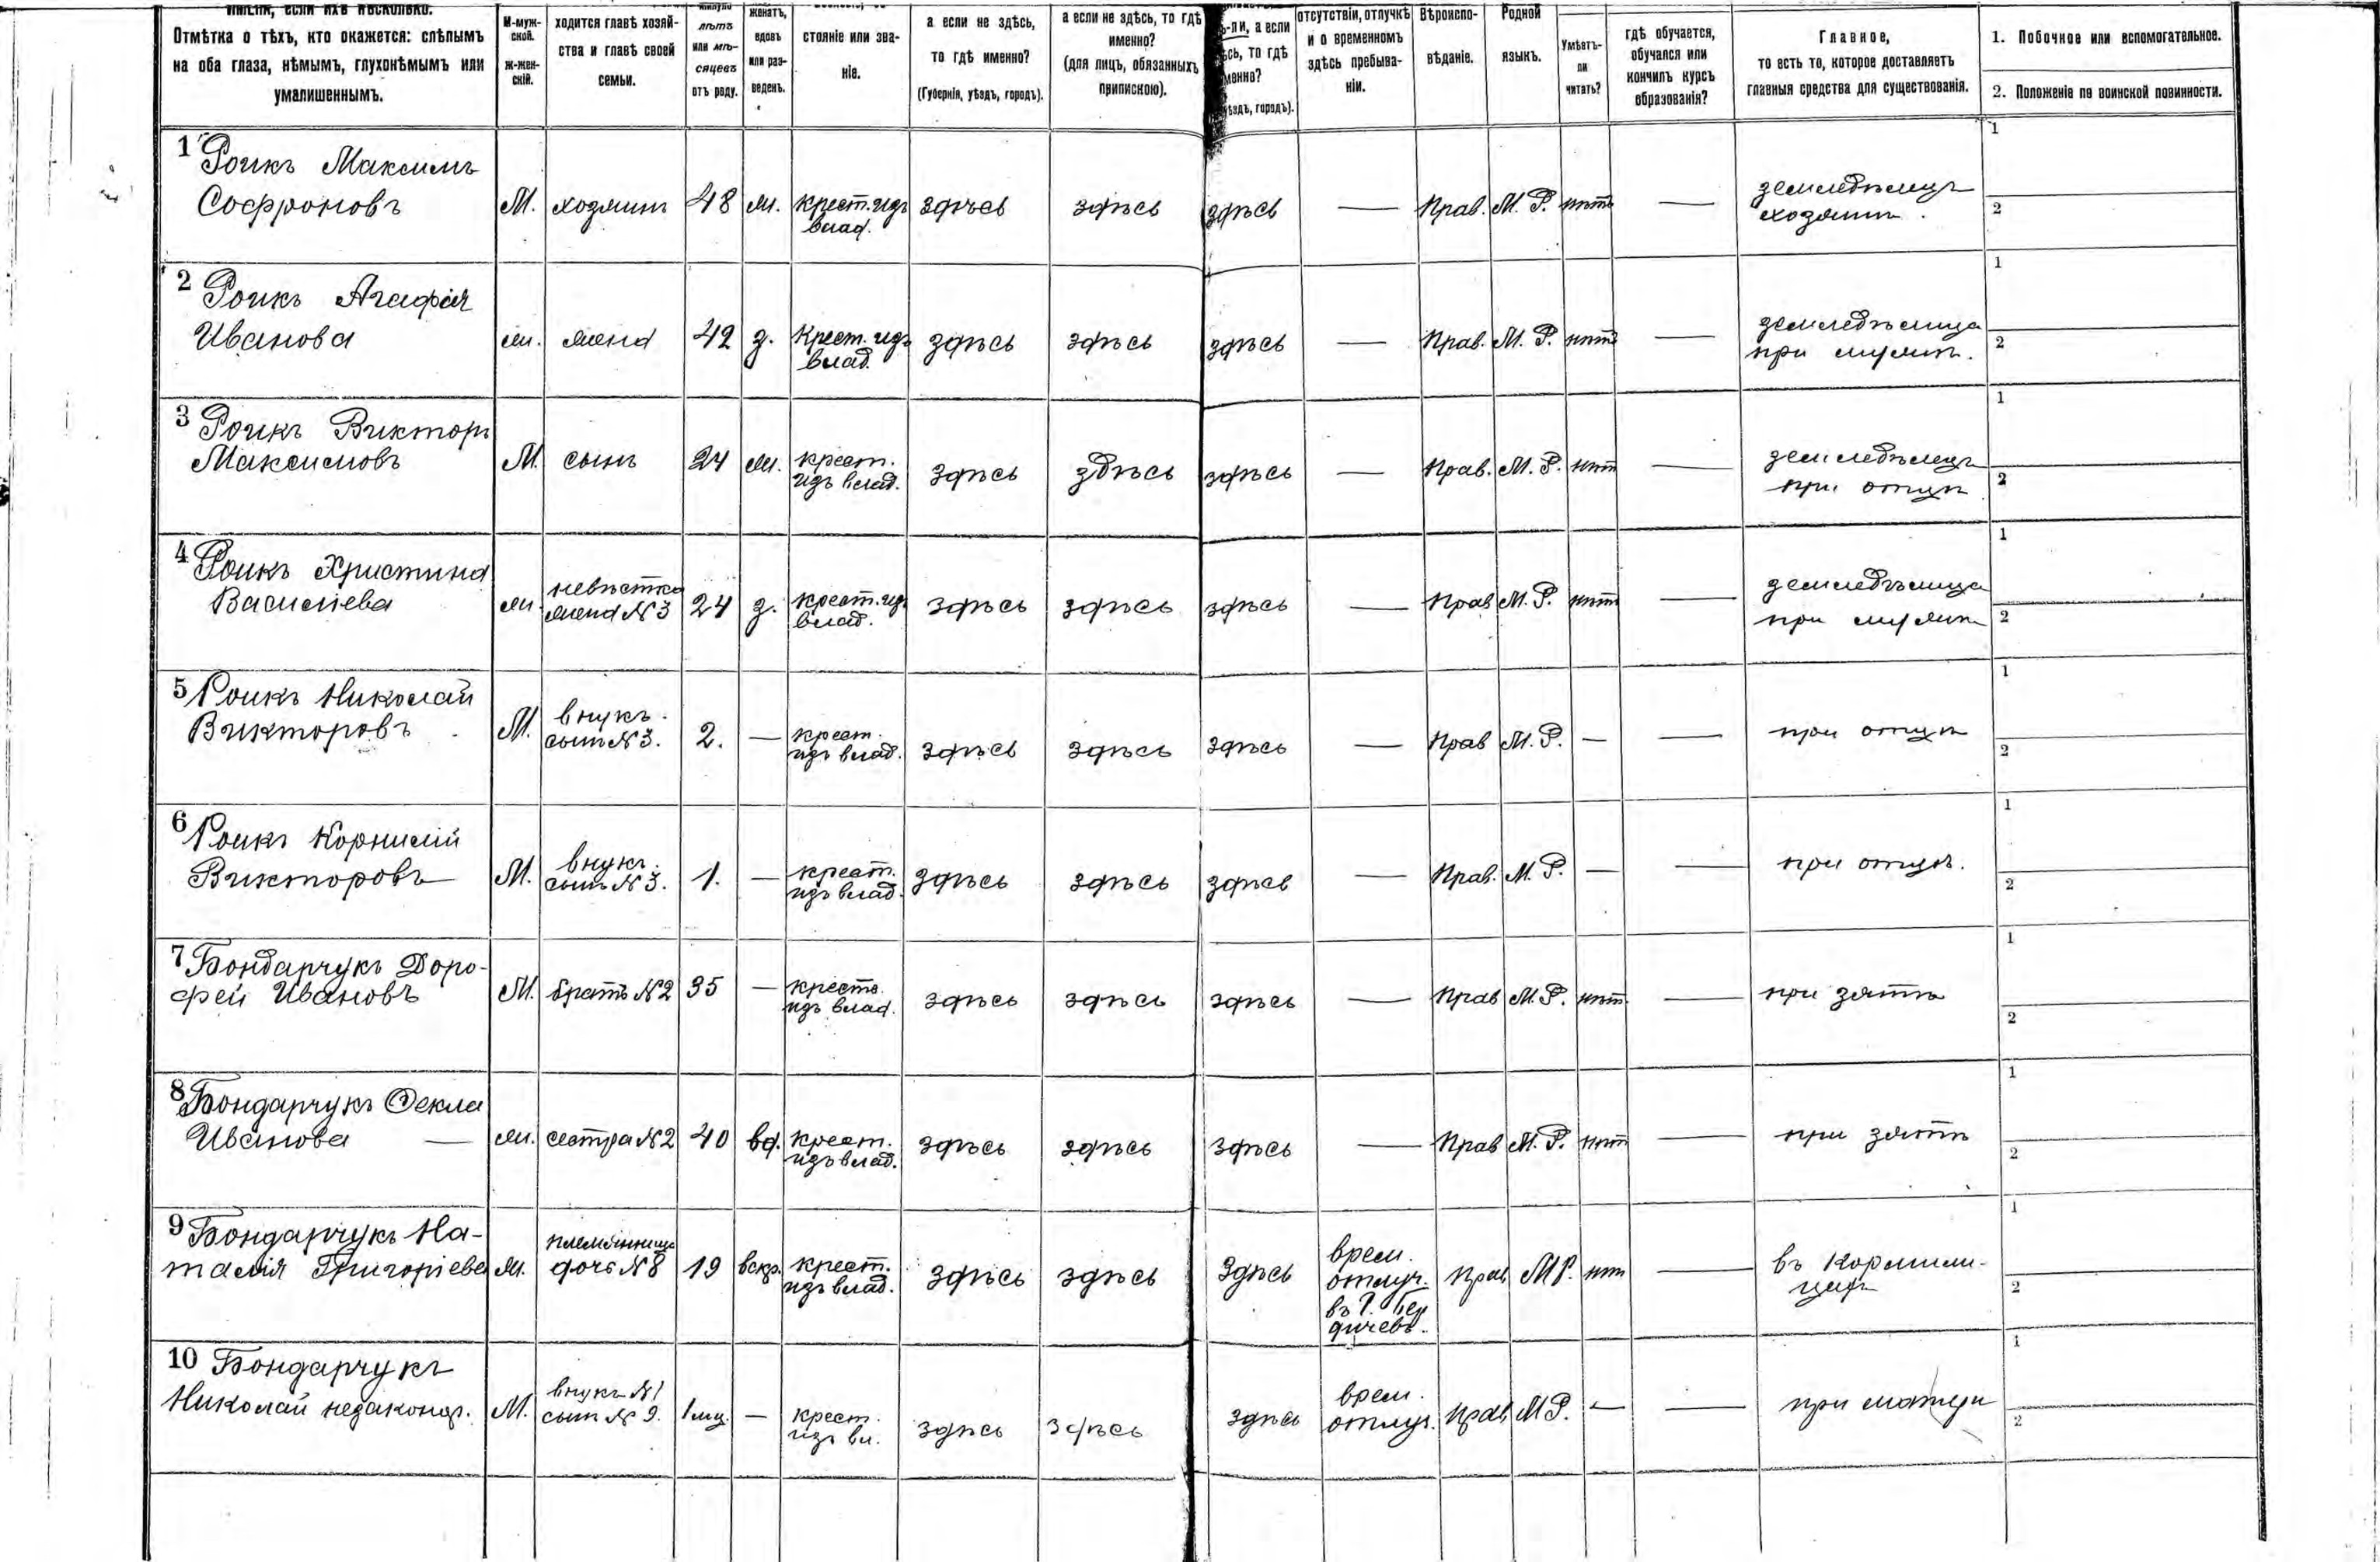 имени, если ихъ нѣсколько.
Отмѣтка о тѣхъ, кто окажется: слѣпымъ
на оба глаза, нѣмымъ, глухонѣмымъ или
умалишеннымъ.
М-муж-
ской.
Ж-жен-
скій.
ходится главѣ хозяй-
ства и главѣ своей
семьи.
лѣтъ
или мѣ-
сяцевъ
отъ роду.
женатъ,
вдовъ
или раз-
веденъ.
стояніе или зва-
ніе.
а если не здѣсь,
то гдѣ именно?
(Губернія, уѣздъ, городъ).
а если не здѣсь, то гдѣ
именно?
(для лицъ, обязанныхъ
припискою).
ь-ли, а если
сь, то гдѣ
менно?
ѣздъ, городъ).
отсутствіи, отлучкѣ
и о временномъ
здѣсь пребыва-
ніи.
Вѣроиспо-
вѣданіе.
Родной
языкъ.
Умѣетъ-
ли
читать?
гдѣ обучается,
обучался или
кончилъ курсъ
образованія?
Главное,
то есть то, которое доставляетъ
главныя средства для существованія.
1. Побочное или вспомогательное.
2. Положеніе по воинской повинности.
1 Роикъ Максимъ
Софроновъ
М. хозяинъ 48 ж. крест. изъ
влад.
здѣсь здѣсь здѣсь — Прав. М. Р. нѣтъ —
земледѣлецъ
хозяинъ.
1
2
2 Роикъ Агафія
Иванова
ж. жена 42 з. Крест. изъ
влад.
здѣсь здѣсь здѣсь — Прав. М. Р. нѣтъ —
земледѣлица
при мужѣ.
1
2
3 Роикъ Викторъ
Максимовъ
М. сынъ 24 ж. крест.
изъ влад.
здѣсь здѣсь здѣсь — Прав. М. Р. нѣт —
земледѣлецъ
при отцѣ
1
2
4 Роикъ Христина
Василіева
ж. невѣстка
жена №3 24 з. крест. изъ
влад.
здѣсь здѣсь здѣсь — Прав М. Р. нѣт —
земледѣлица
при мужѣ
1
2
5 Роикъ Николай
Викторовъ
М. внукъ.
сынъ №3. 2. — крест.
изъ влад.
здѣсь здѣсь здѣсь — Прав М. Р. — —
при отцѣ
1
2
6 Роикъ Корнилій
Викторовъ
М. внукъ.
сынъ №3. 1. — крест.
изъ влад.
здѣсь здѣсь здѣсь — Прав. М. Р. — —
при отцѣ.
1
2
7 Бондарчукъ Доро-
фей Ивановъ
М. братъ №2 35 — крестъ.
изъ влад.
здѣсь здѣсь здѣсь — Прав М. Р. нѣт —
при зятѣ
1
2
8 Бондарчукъ Ѳекла
Иванова —
ж. сестра №2 40 вд. крест.
изъ влад.
здѣсь здѣсь здѣсь — Прав М. Р. нѣт —
при зятѣ
1
2
9 Бондарчукъ На-
талія Григоріева
ж. племянница
дочь №8 19 крест.
изъ влад.
здѣсь здѣсь здѣсь
врем.
отлуч.
въ Г. Бер
дичевъ.
Прав М Р. нѣт —
въ кормили-
цахъ
1
2
10 Бондарчукъ
Николай незаконор.
М. внукъ №1
сынъ №9. 1 мц. — крест.
изъ вл.
здѣсь здѣсь здѣсь
врем.
отлуч.
Прав М Р. — —
при матери
1
2